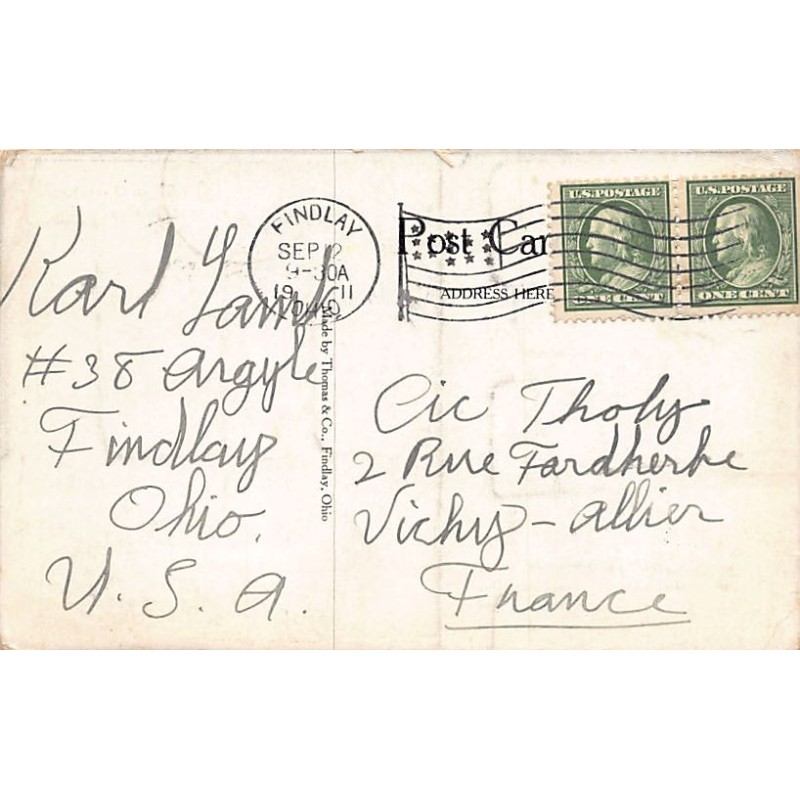 Karl Lamb
#38 Argyle
Findlay
Ohio.
U. S. A.
Made by Thomas & Co., Findlay, Ohio
FINDLAY
SEP 12
9-30A
19 11
OHIO
Post Car
ADDRESS HERE
U.S. POSTAGE
ONE CENT
U.S. POSTAGE
ONE CENT
Cic Tholy
2 Rue Fardherbe
Vichy - Allier
France